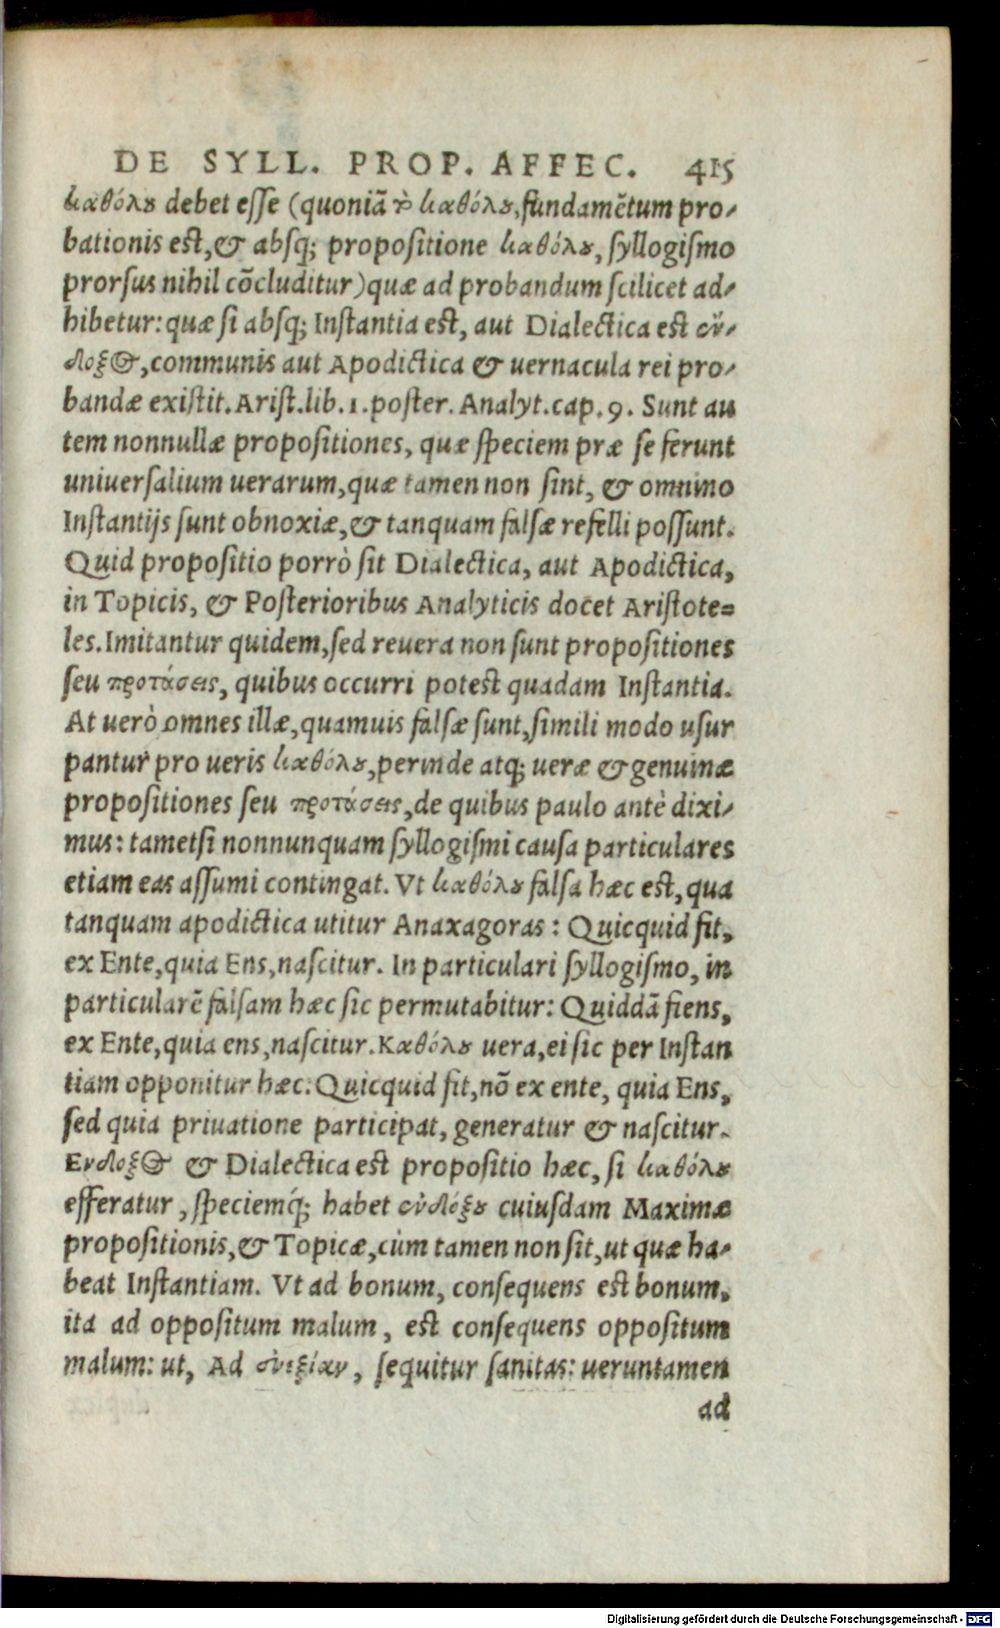 DE SYLL. PROP. AFFEC. 415
καθόλȣ debet esse (quoniã τὸ καθόλȣ, fundamẽtum pro-
bationis est, & absq; propositione καθόλȣ, syllogismo
prorsus nihil cõcluditur) quæ ad probandum scilicet ad-
hibetur: quæ si absq; Instantia est, aut Dialectica est ἔν-
δοξος, communis aut Apodictica & uernacula rei pro-
bandæ existit. Arist. lib. 1. poster. Analyt. cap. 9. Sunt au
tem nonnullæ propositiones, quæ speciem præ se ferunt
uniuersalium uerarum, quæ tamen non sint, & omnino
Instantijs sunt obnoxiæ, & tanquam falsæ refelli possunt.
Quid propositio porrò sit Dialectica, aut Apodictica,
in Topicis, & Posterioribus Analyticis docet Aristote=
les. Imitantur quidem, sed reuera non sunt propositiones
seu προτάσεις, quibus occurri potest quadam Instantia.
At uerò omnes illæ, quamuis falsæ sunt, simili modo usur
pantur pro ueris καθόλȣ, perinde atq; ueræ & genuinæ
propositiones seu προτάσεις, de quibus paulo antè dixi-
mus: tametsi nonnunquam syllogismi causa particulares
etiam eas assumi contingat. Vt καθόλȣ falsa hæc est, qua
tanquam apodictica utitur Anaxagoras: Quicquid fit,
ex Ente, quia Ens, nascitur. In particulari syllogismo, in
particularẽ falsam hæc sic permutabitur: Quiddã fiens,
ex Ente, quia ens, nascitur. Καθόλȣ uera, ei sic per Instan
tiam opponitur hæc: Quicquid fit, nõ ex ente, quia Ens,
sed quia priuatione participat, generatur & nascitur.
Ενδοξος & Dialectica est propositio hæc, si καθόλȣ
efferatur, speciemq́; habet ἐνδόξȣ cuiusdam Maximæ
propositionis, & Topicæ, cùm tamen non sit, ut quæ ha-
beat Instantiam. Vt ad bonum, consequens est bonum,
ita ad oppositum malum, est consequens oppositum
malum: ut, Ad εὐεξίαν, sequitur sanitas: ueruntamen
ad
Digitalisierung gefördert durch die Deutsche Forschungsgemeinschaft - DFG